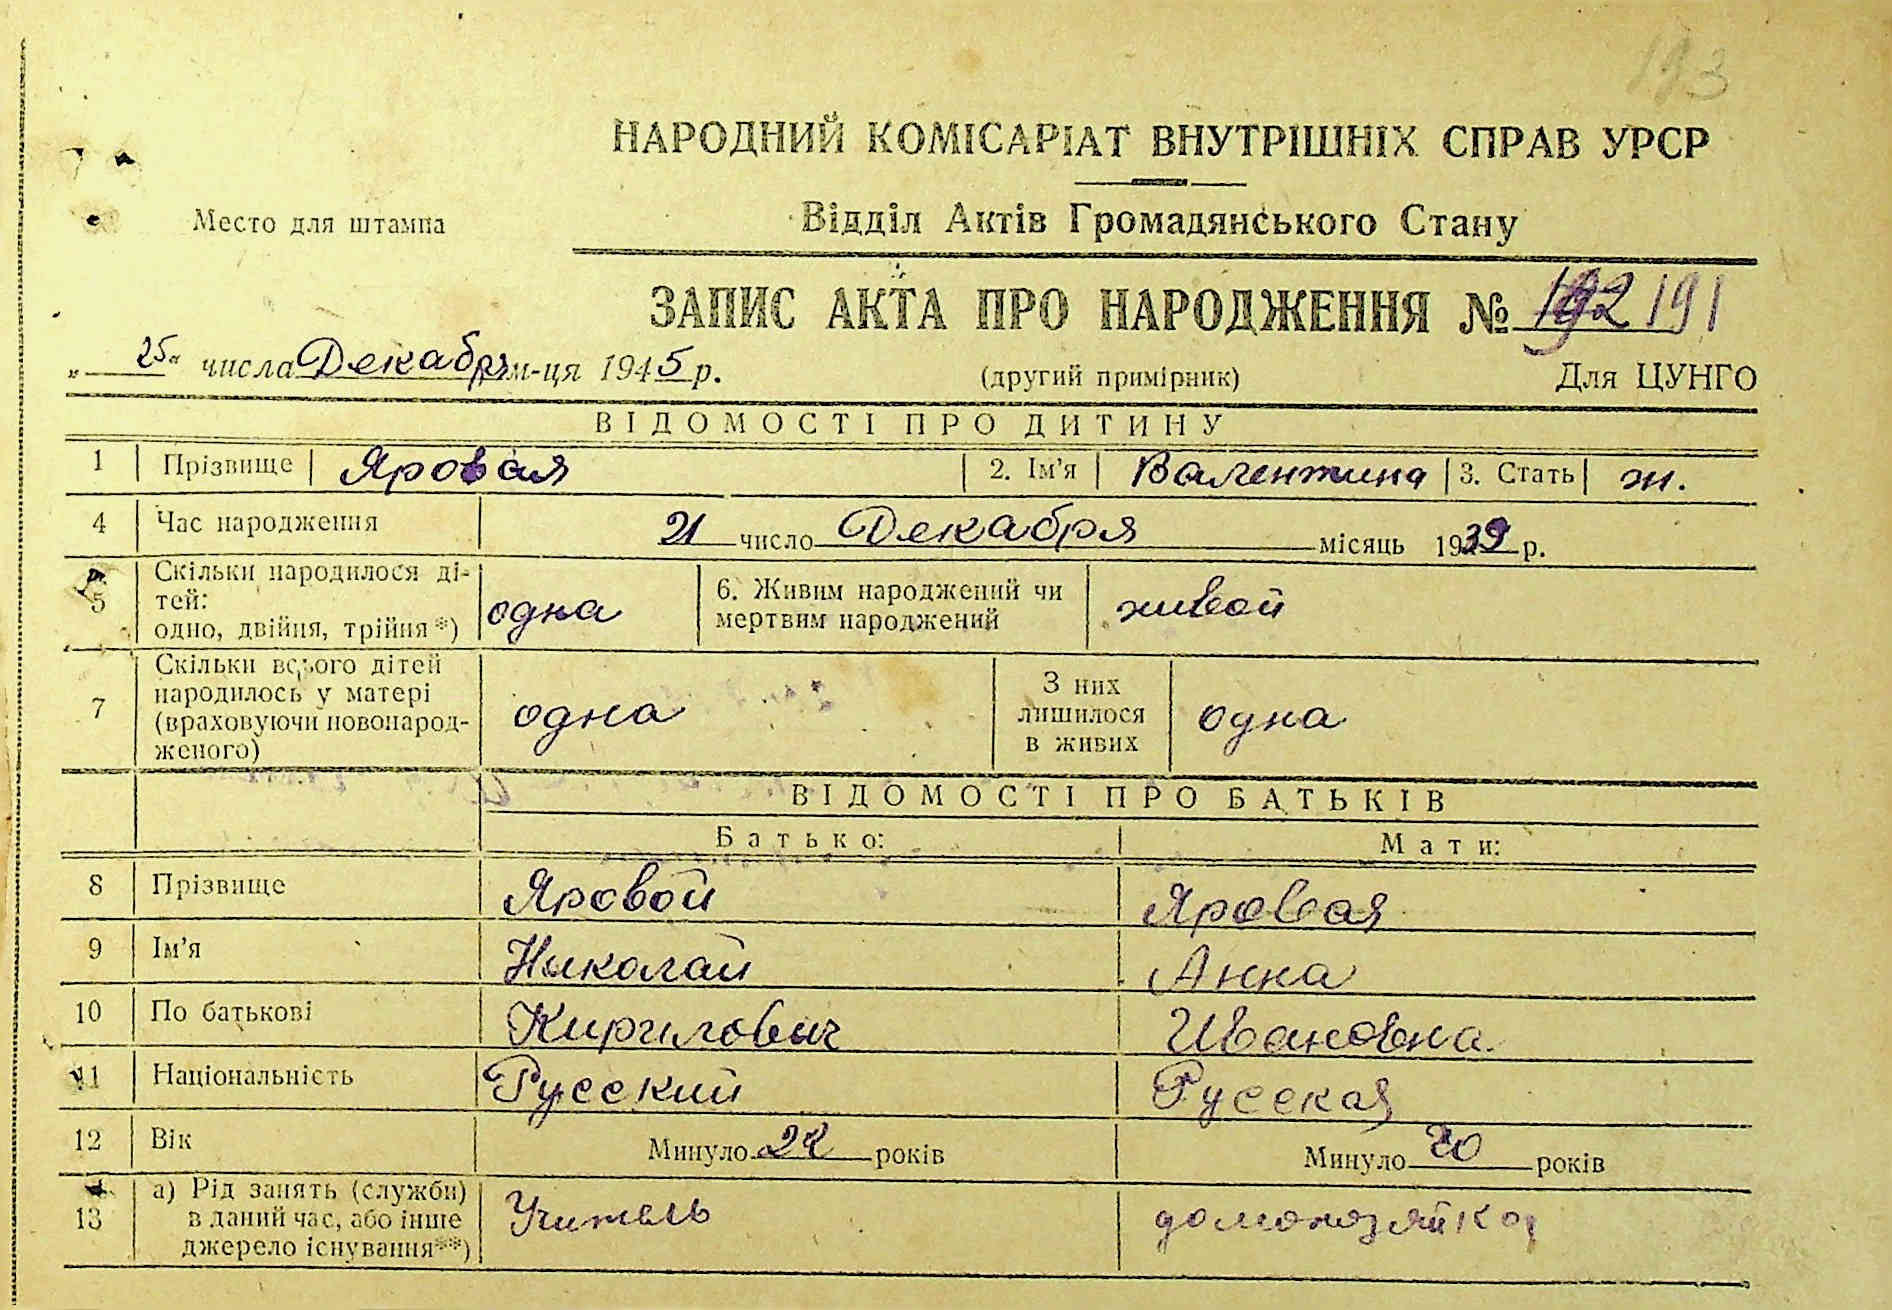 193
НАРОДНИЙ КОМІСАРІАТ ВНУТРІШНІХ СПРАВ УРСР
Место для штампа
Відділ Актів Громадянського Стану
ЗАПИС АКТА ПРО НАРОДЖЕННЯ № 192 191
„ 25 “ числа Декабря м-ця 1945 р.
(другий примірник)
Для ЦУНГО
ВІДОМОСТІ ПРО ДИТИНУ
1 Прізвище Яровая 2. Ім'я Валентина 3. Стать ж.
4 Час народження 21 число Декабря місяць 1939 р.
5 Скільки народилося ді-
тей:
одно, двійня, трійня*) одна 6. Живим народжений чи
мертвим народжений живой
7 Скільки всього дітей
народилось у матері
(враховуючи новонарод-
женого) одна З них
лишилося
в живих одна
ВІДОМОСТІ ПРО БАТЬКІВ
Батько: Мати:
8 Прізвище Яровой Яровая
9 Ім'я Николай Анна
10 По батькові Кирилович Ивановна
11 Національність Русский Русская
12 Вік Минуло 22 років Минуло 20 років
13 а) Рід занять (служби)
в даний час, або інше
джерело існування**) Учитель домохозяйка